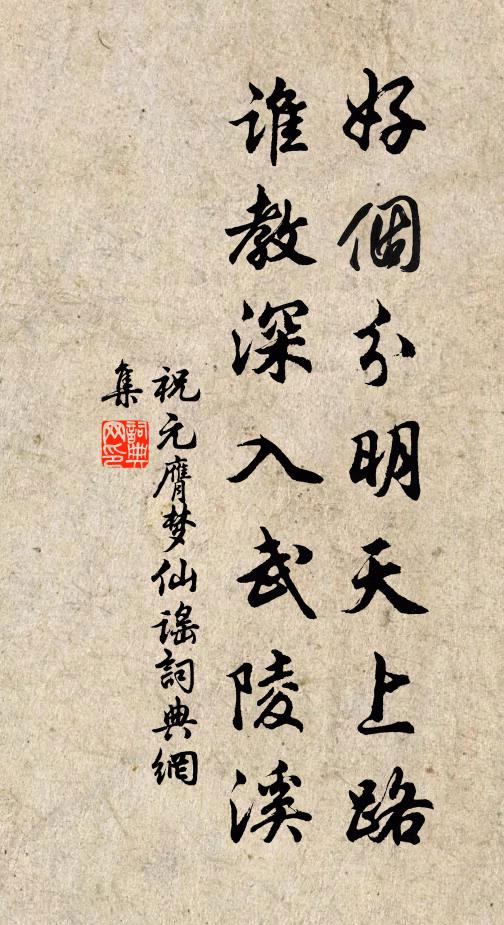 好個分明天上路
誰教深入武陵溪
祝元膺梦仙謠詞典網
集
詞典
网印